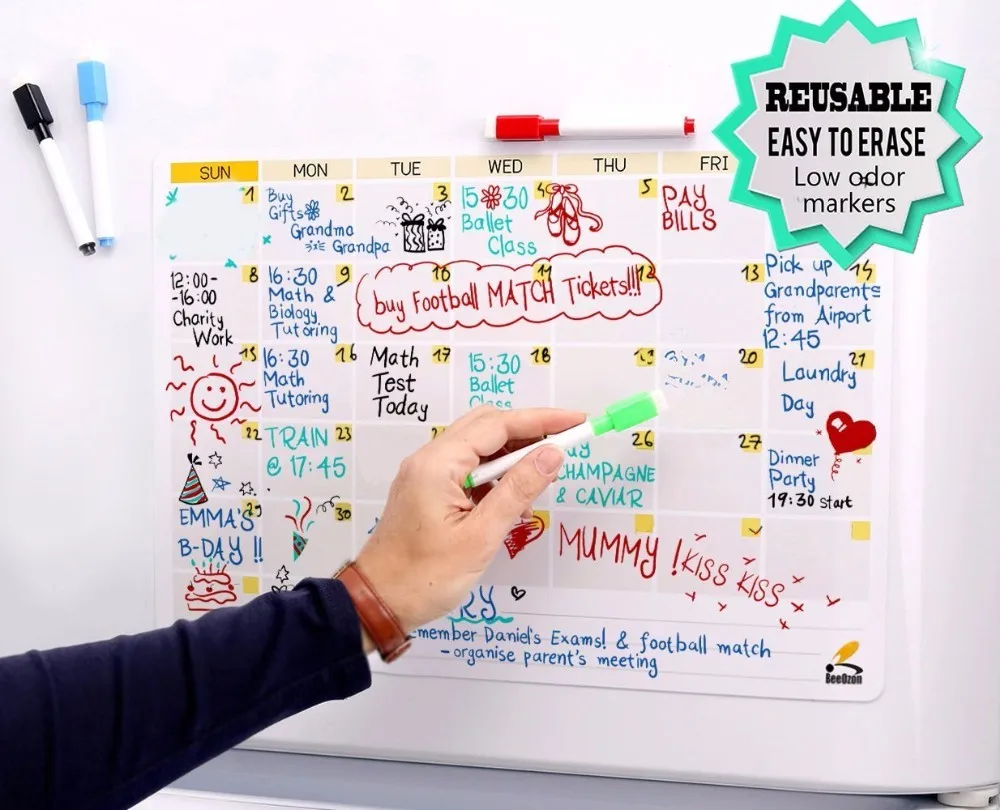 REUSABLE
EASY TO ERASE
Low odor
markers
SUN MON TUE WED THU FRI
1 2 3 4 5
Buy
Gifts
Grandma
Grandpa
15 30
Ballet
Class
PAY
BILLS
8 9 10 11 12 13 14
12:00-
-16:00
Charity
Work
16:30
Math &
Biology
Tutoring
buy Football MATCH Tickets!!!
Pick up
Grandparents
from Airport
12:45
15 16 17 18 19 20 21
16:30
Math
Tutoring
Math
Test
Today
15:30
Ballet
Class
Laundry
Day
22 23 26 27
TRAIN
@ 17:45
CHAMPAGNE
& CAVIAR
Dinner
Party
19:30 start
29 30
EMMA'S
B-DAY !!
MUMMY !KISS KISS
Daniel's Exams! & football match
- organise parent's meeting
BeeOzon